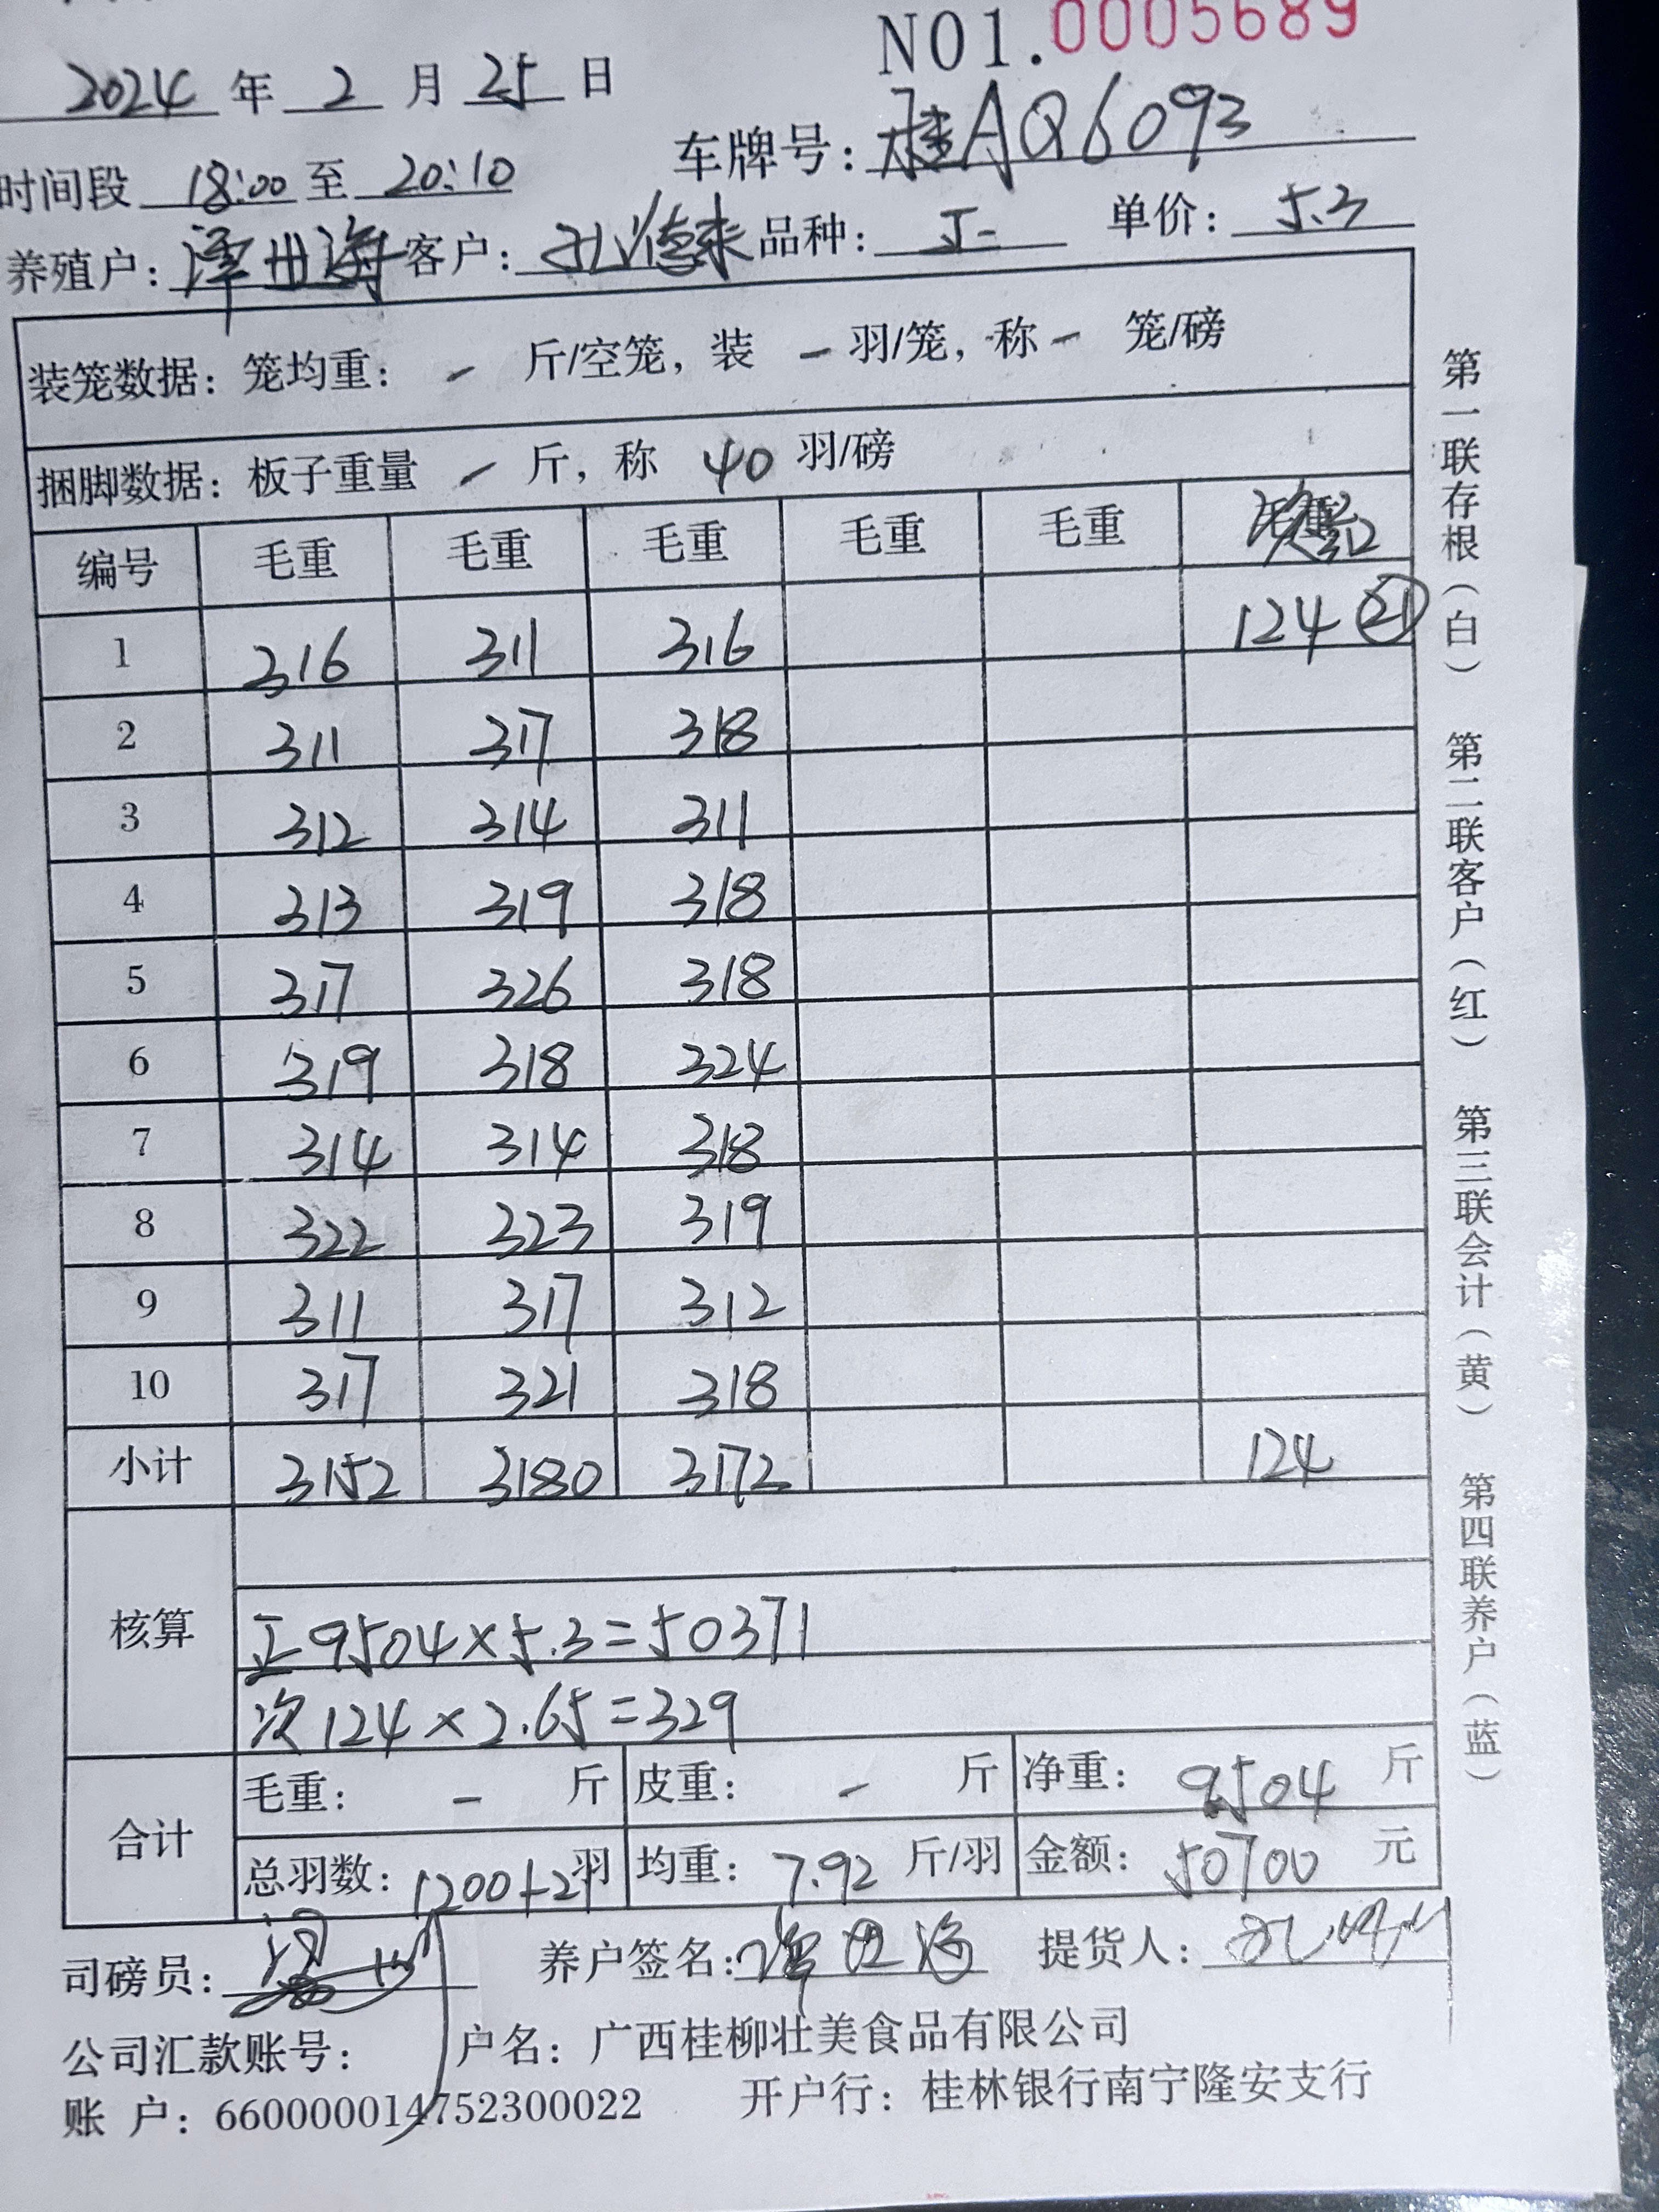 NO1.0005689
2024 年 2 月 25 日
车牌号: 桂AQ6093
时间段 18:00 至 20:10
养殖户: 潭世海 客户: 孔德来 品种: 正 单价: 5.3
装笼数据: 笼均重: - 斤/空笼, 装 - 羽/笼, 称 - 笼/磅
捆脚数据: 板子重量 - 斤, 称 40 羽/磅
编号 毛重 毛重 毛重 毛重 毛重
1 316 311 316 124 21
2 311 317 318
3 312 314 311
4 313 319 318
5 317 326 318
6 319 318 324
7 314 314 318
8 322 323 319
9 311 317 312
10 317 321 318
小计 3152 3180 3172 124
核算
正9504×5.3=50371
次124×2.65=329
合计
毛重: - 斤 皮重: - 斤 净重: 9504 斤
总羽数: 1200+21羽 均重: 7.92 斤/羽 金额: 50700 元
司磅员: 养户签名: 潭世海 提货人:
公司汇款账号: 户名: 广西桂柳壮美食品有限公司
账 户: 660000014752300022 开户行: 桂林银行南宁隆安支行
第一联存根(白) 第二联客户(红) 第三联会计(黄) 第四联养户(蓝)